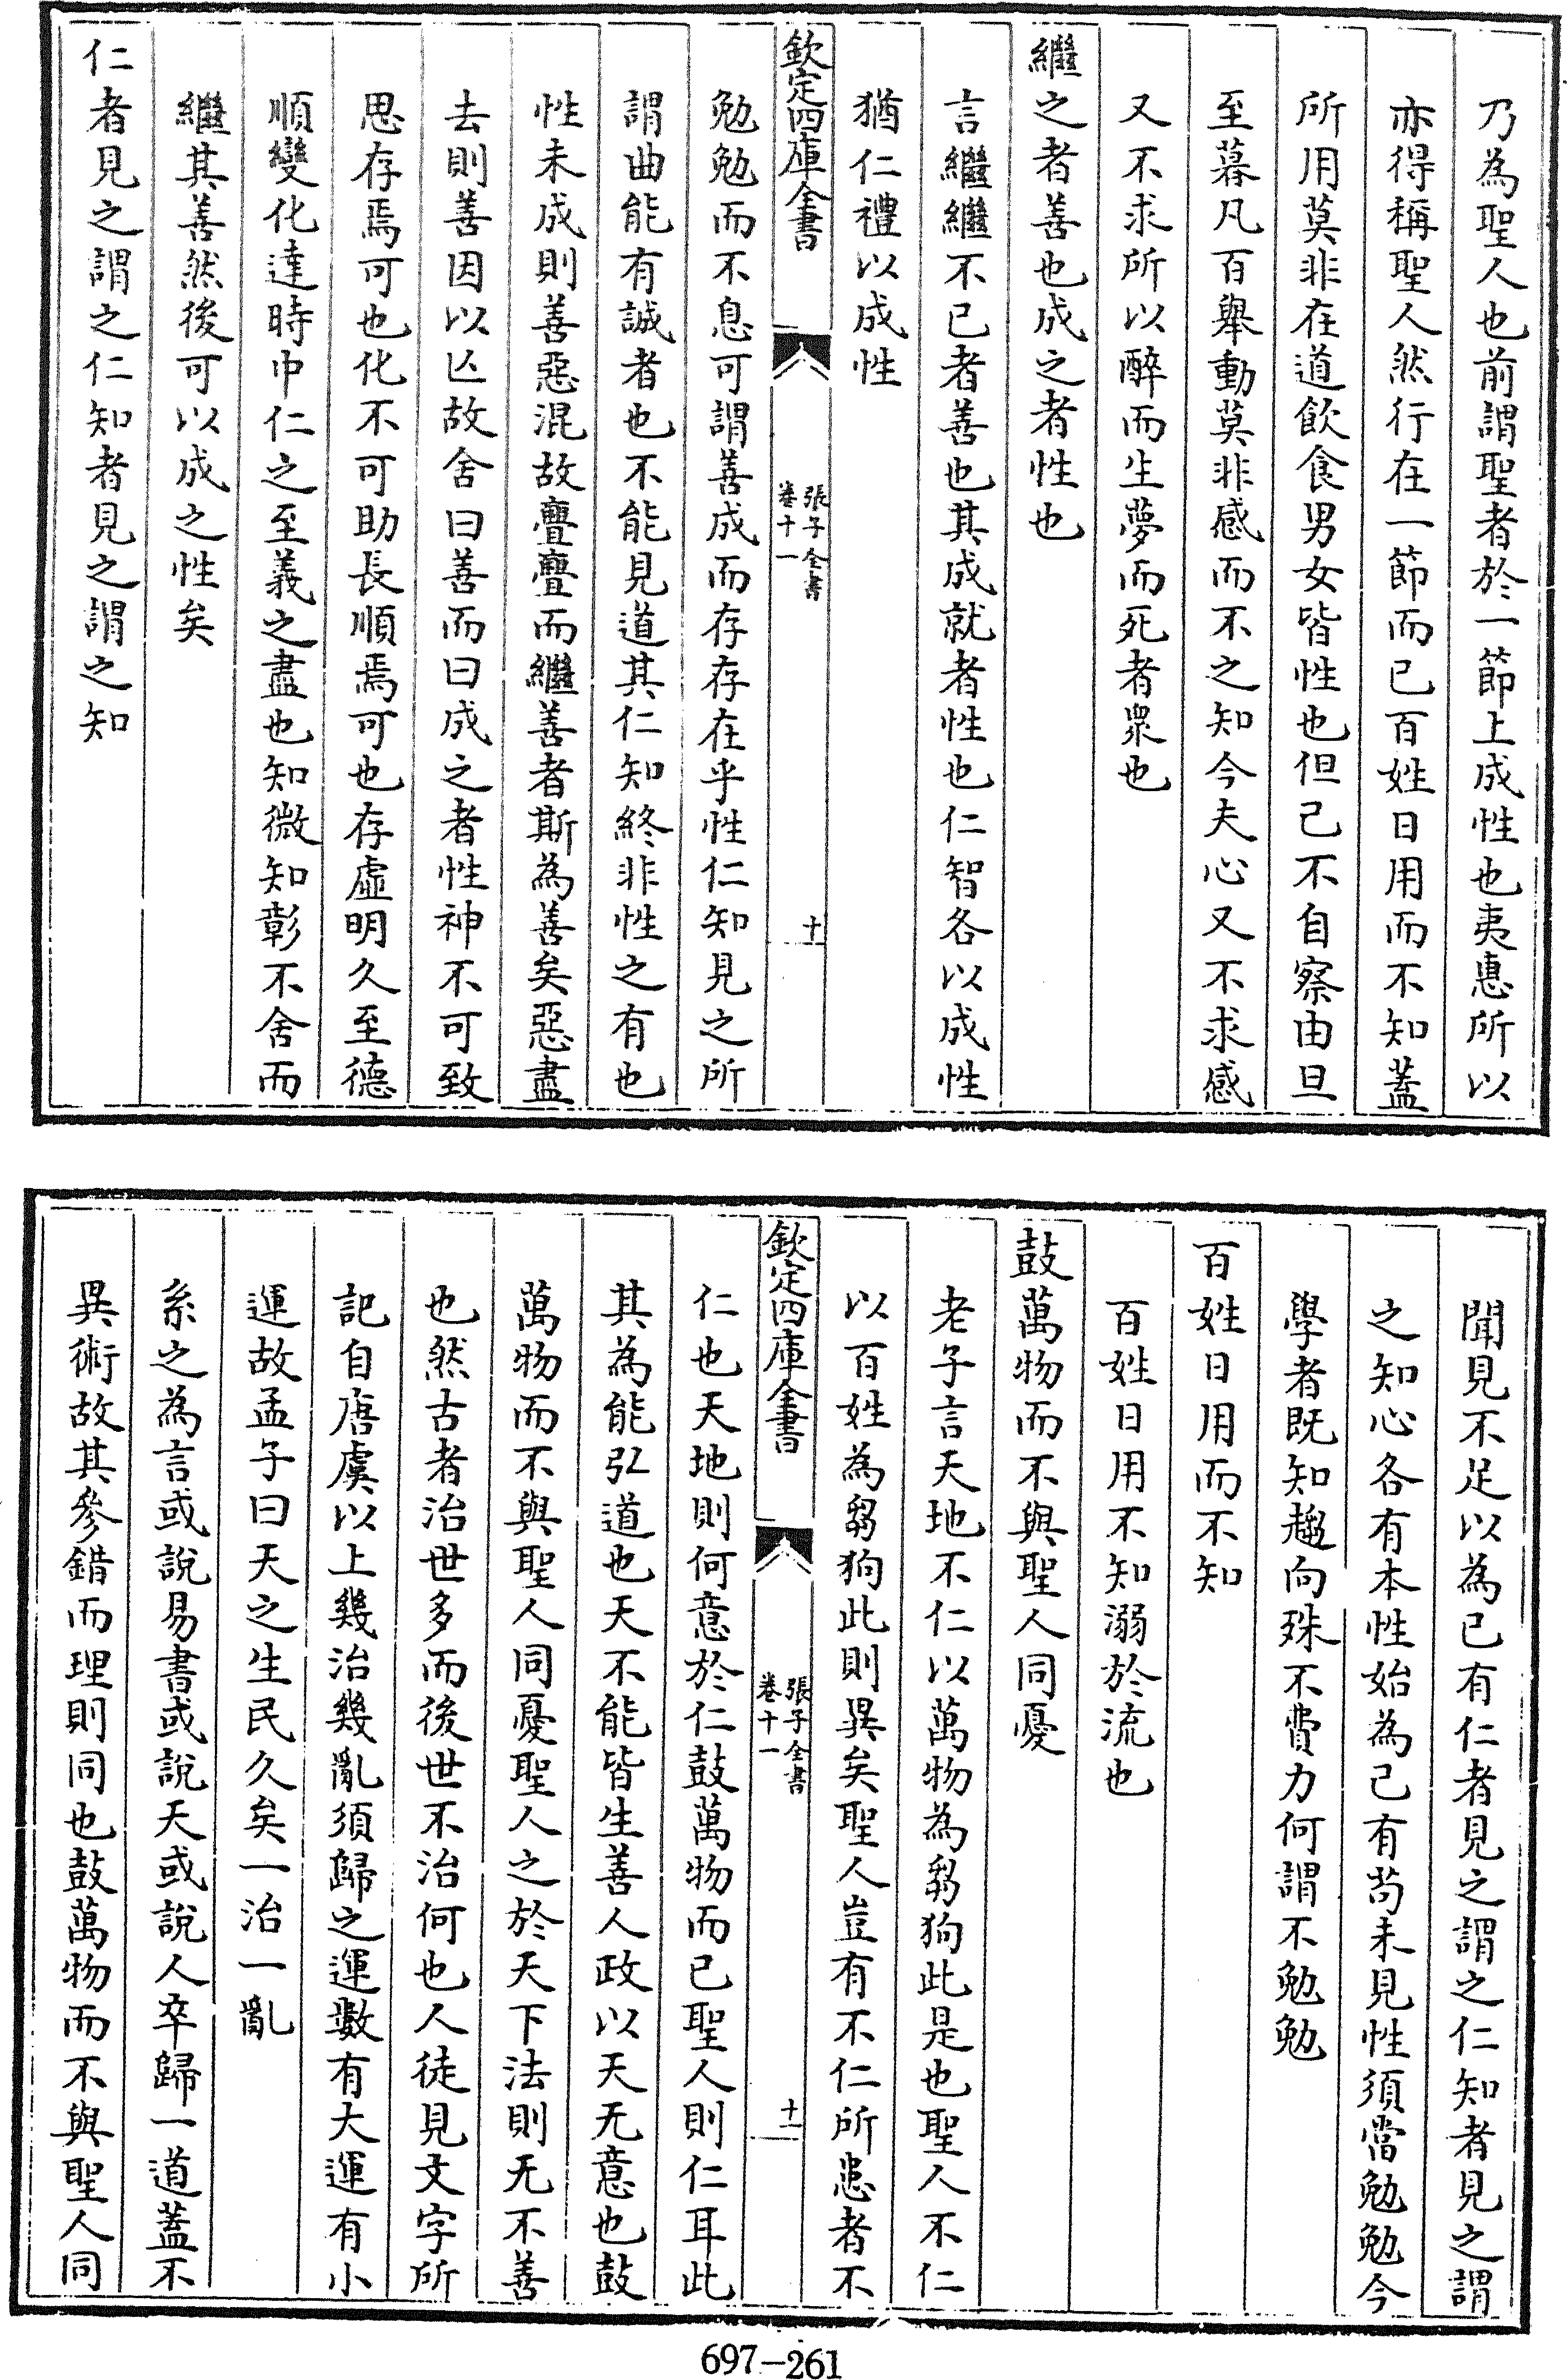 乃為聖人也前謂聖者於一節上成性也夷惠所以
亦得稱聖人然行在一節而已百姓日用而不知蓋
所用莫非在道飲食男女皆性也但己不自察由旦
至暮凡百舉動莫非感而不之知今夫心又不求感
又不求所以醉而生夢而死者衆也
繼之者善也成之者性也
言繼繼不已者善也其成就者性也仁智各以成性
猶仁禮以成性
欽定四庫全書
張子全書
卷十一
十
勉勉而不息可謂善成而存存在乎性仁知見之所
謂曲能有誠者也不能見道其仁知終非性之有也
性未成則善惡混故亹亹而繼善者斯為善矣惡盡
去則善因以亾故舍曰善而曰成之者性神不可致
思存焉可也化不可助長順焉可也存虛明久至德
順變化達時中仁之至義之盡也知微知彰不舍而
繼其善然後可以成之性矣
仁者見之謂之仁知者見之謂之知
聞見不足以為已有仁者見之謂之仁知者見之謂
之知心各有本性始為己有苟未見性須當勉勉今
學者既知趨向殊不費力何謂不勉勉
百姓日用而不知
百姓日用不知溺於流也
鼓萬物而不與聖人同憂
老子言天地不仁以萬物為芻狗此是也聖人不仁
以百姓為芻狗此則異矣聖人豈有不仁所患者不
欽定四庫全書
張子全書
卷十一
十一
仁也天地則何意於仁鼓萬物而已聖人則仁耳此
其為能弘道也天不能皆生善人政以天无意也鼓
萬物而不與聖人同憂聖人之於天下法則无不善
也然古者治世多而後世不治何也人徒見文字所
記自唐虞以上幾治幾亂須歸之運數有大運有小
運故孟子曰天之生民久矣一治一亂
系之為言或說易書或說天或說人卒歸一道蓋不
異術故其參錯而理則同也鼓萬物而不與聖人同
697-261